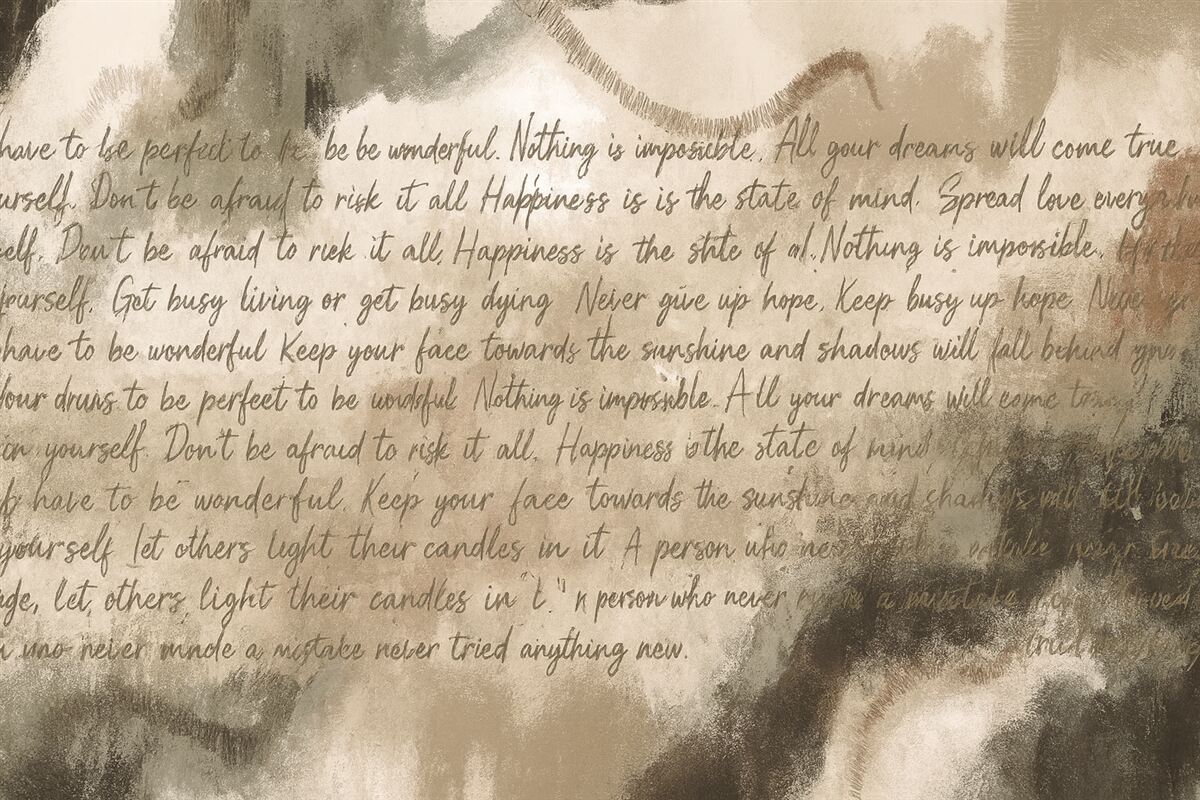 have to be perfect to be be be wonderful. Nothing is impossible. All your dreams will come true
urself. Don't be afraid to risk it all Happiness is is the state of mind. Spread love every
self. Don't be afraid to risk it all, Happiness is the shte of al. Nothing is impossible.
yourself. Get busy living or get busy dying Never give up hope. Keep busy up hope
have to be wonderful Keep your face towards the sunshine and shadows will fall behind
to be perfect to be Nothing is impossible. All your dreams will come
in yourself. Don't be afraid to risk it all. Happiness is the state of mind
have to be wonderful. Keep your face towards the sunshine and shadows will
yourself let others light their candles in it A person who
age, let others light their candles in "t." n person who never a mistake
uno never mnde a mistake never tried anything new.